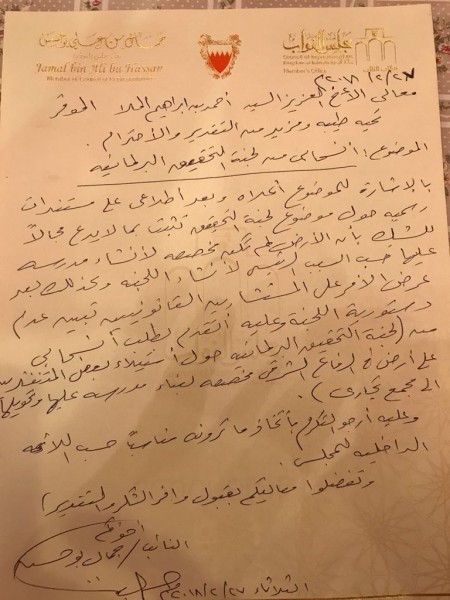 جمال بن علي بو حسن
Jamal bin Ali bu Hassan
مجلس النواب
Council of Representatives
Kingdom of Bahrain
Member's Office
٢٠١٨/٢/٢٧م
معالي الأخ العزيز السيد أحمد بن إبراهيم الملا الموقر
تحيه طيبه ومزيد من التقدير والأحترام .
الموضوع : أنسحابي من لجنة التحقيق البرلمانيه
بالاشارة للموضوع أعلاه وبعد أطلاعي على مستندات
رسميه حول موضوع لجنة التحقيق تثبت بما لايدع مجالاً
للشك بأن الأرض لم تكن مخصصه لأنشاء مدرسه
عليها حسب السبب الرئيسي لأنشاء اللجنه وكذلك بعد
عرض الأمر على المستشارين القانونيين تبين عدم
دستورية اللجنة وعليه أتقدم بطلب أنسحابي
من (لجنة التحقيق البرلمانيه حول أستيلاء بعض المتنفذين
على أرض في الرفاع الشرقي مخصصه لبناء مدرسه عليها وتحويلها
الى مجمع تجاري ) .
وعليه أرجو التكرم بأتخاذ ما ترونه مناسباً حسب اللائحه
الداخليه للمجلس .
وتفضلوا معاليكم بقبول وافر الشكر والتقدير ،
أخوكم
النائب / جمال بوحسن
الثلاثاء ٢٠١٨/٢/٢٧م